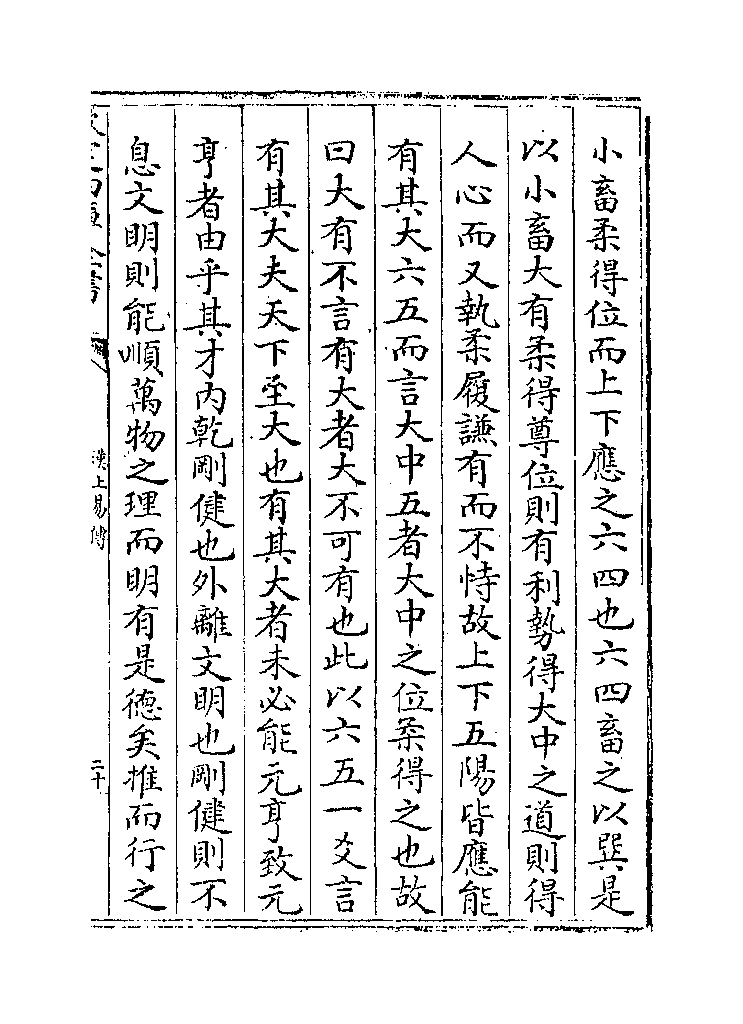 小畜柔得位而上下應之六四也六四畜之以巽是
以小畜大有柔得尊位則有利勢得大中之道則得
人心而又執柔履謙有而不恃故上下五陽皆應能
有其大六五而言大中五者大中之位柔得之也故
曰大有不言有大者大不可有也此以六五一爻言
有其大夫天下至大也有其大者未必能元亨致元
亨者由乎其才内乾剛健也外離文明也剛健則不
息文明則能順萬物之理而明有是德矣推而行之
漢上易傳
二十